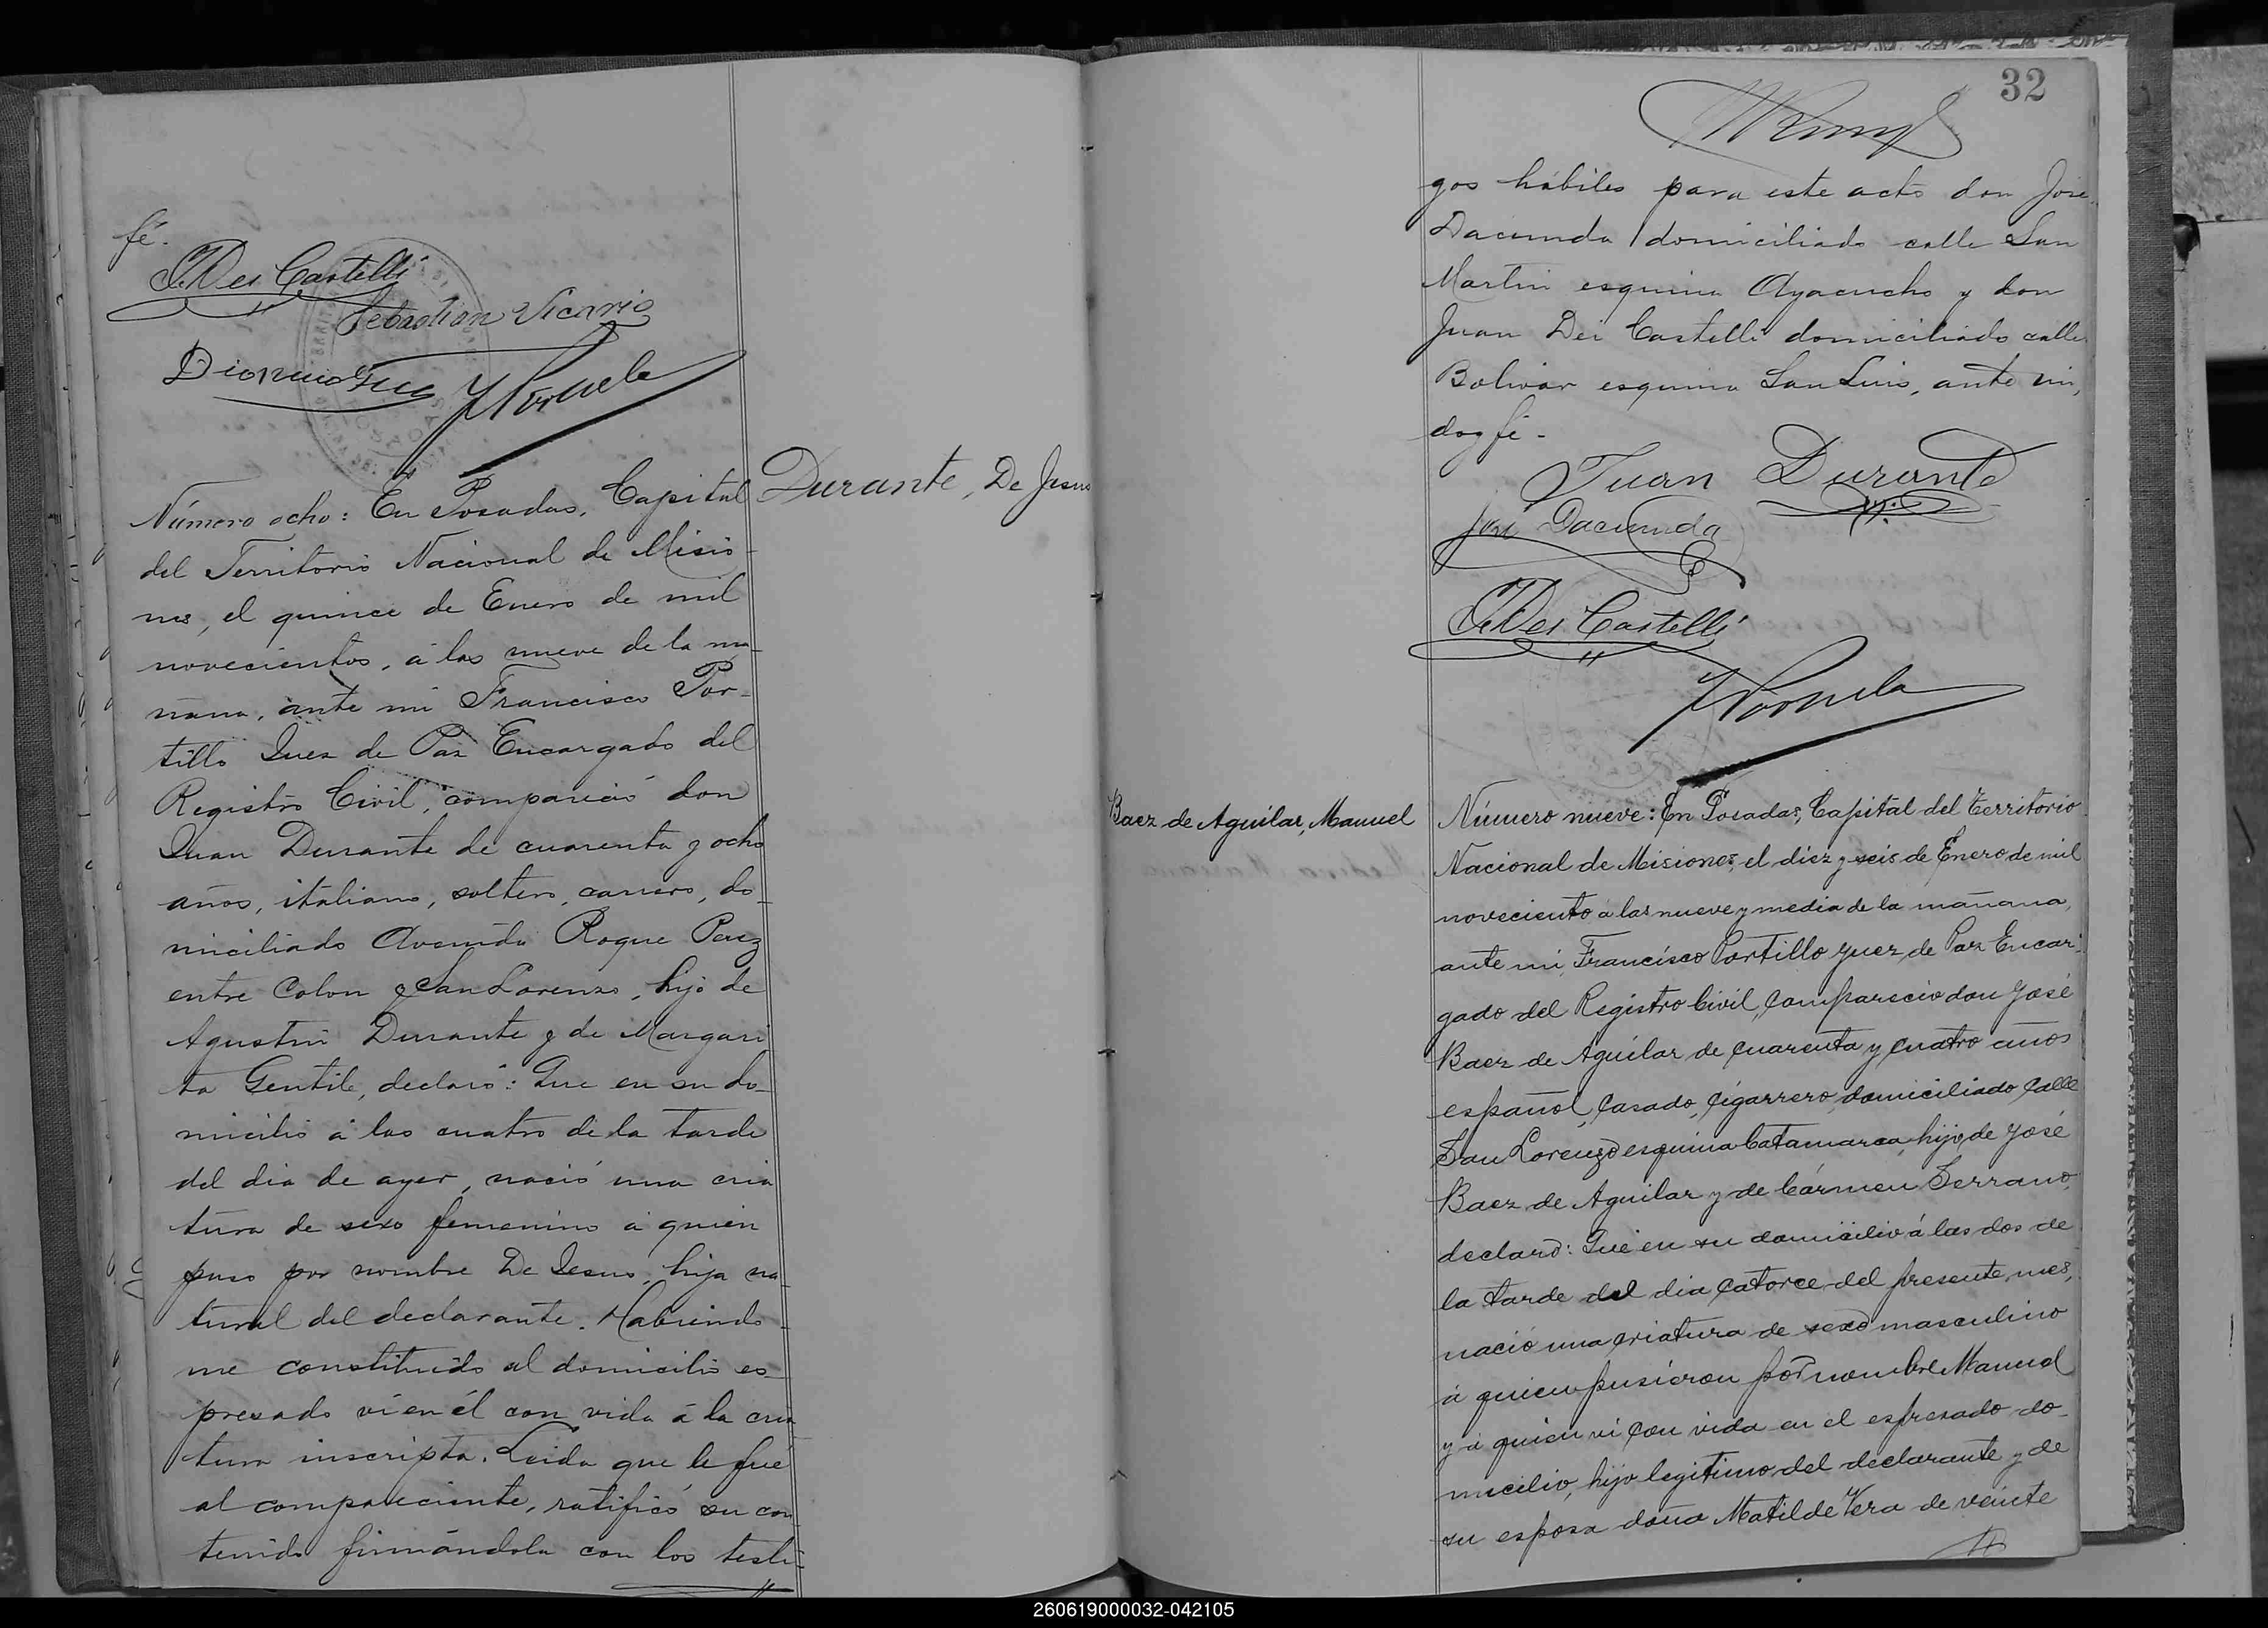 fé.
J. Dei Castelli
Sebastian Vicario
Dionicio
Número ocho: En Posadas, Capital
Durante, De Jesus
del Territorio Nacional de Misio-
nes, el quince de Enero de mil
novecientos, á las nueve de la ma-
ñana, ante mi Francisco Por-
tillo Juez de Paz Encargado del
Registro Civil, compareció don
Juan Durante de cuarenta y ocho
años, italiano, soltero, carrero, do-
miciliado Avenida Roque Perez
entre Colon y San Lorenzo, hijo de
Agustin Durante y de Margari
ta Gentile, declaró: Que en su do-
micilio á las cuatro de la tarde
del dia de ayer, nació una cria
tura de sexo femenino á quien
puso por nombre De Jesus, hija na-
tural del declarante. Habiendo-
me constituido al domicilio es-
presado ví en él con vida á la cria
tura inscripta. Leida que le fué
al compareciente, ratificó su con
tenido firmándola con los testi-
32
gos hábiles para este acto don José
Dacunda domiciliado calle San
Martin esquina Ayacucho y don
Juan Dei Castelli domiciliado calle
Bolivar esquina San Luis, ante mi,
doy fé-
Juan Durante
José Dacunda
J. Dei Castelli
Baez de Aguilar, Manuel
Número nueve: En Posadas, Capital del Territorio
Nacional de Misiones, el diez y seis de Enero de mil
noveciento á las nueve y media de la mañana,
ante mi, Francisco Portillo Juez de Paz Encar-
gado del Registro Civil, compareció don José
Baez de Aguilar de cuarenta y cuatro años
español, casado, cigarrero, domiciliado calle
San Lorenzo esquina Catamarca, hijo de José
Baez de Aguilar y de Cármen Serrano,
declaró: Que en su domicilio á las dos de
la tarde del dia catorce del presente mes,
nació una criatura de sexo masculino
á quien pusieron por nombre Manuel
y á quien vi con vida en el espresado do-
micilio, hijo legitimo del declarante y de
su esposa doña Matilde Vera de veinte
260619000032-042105